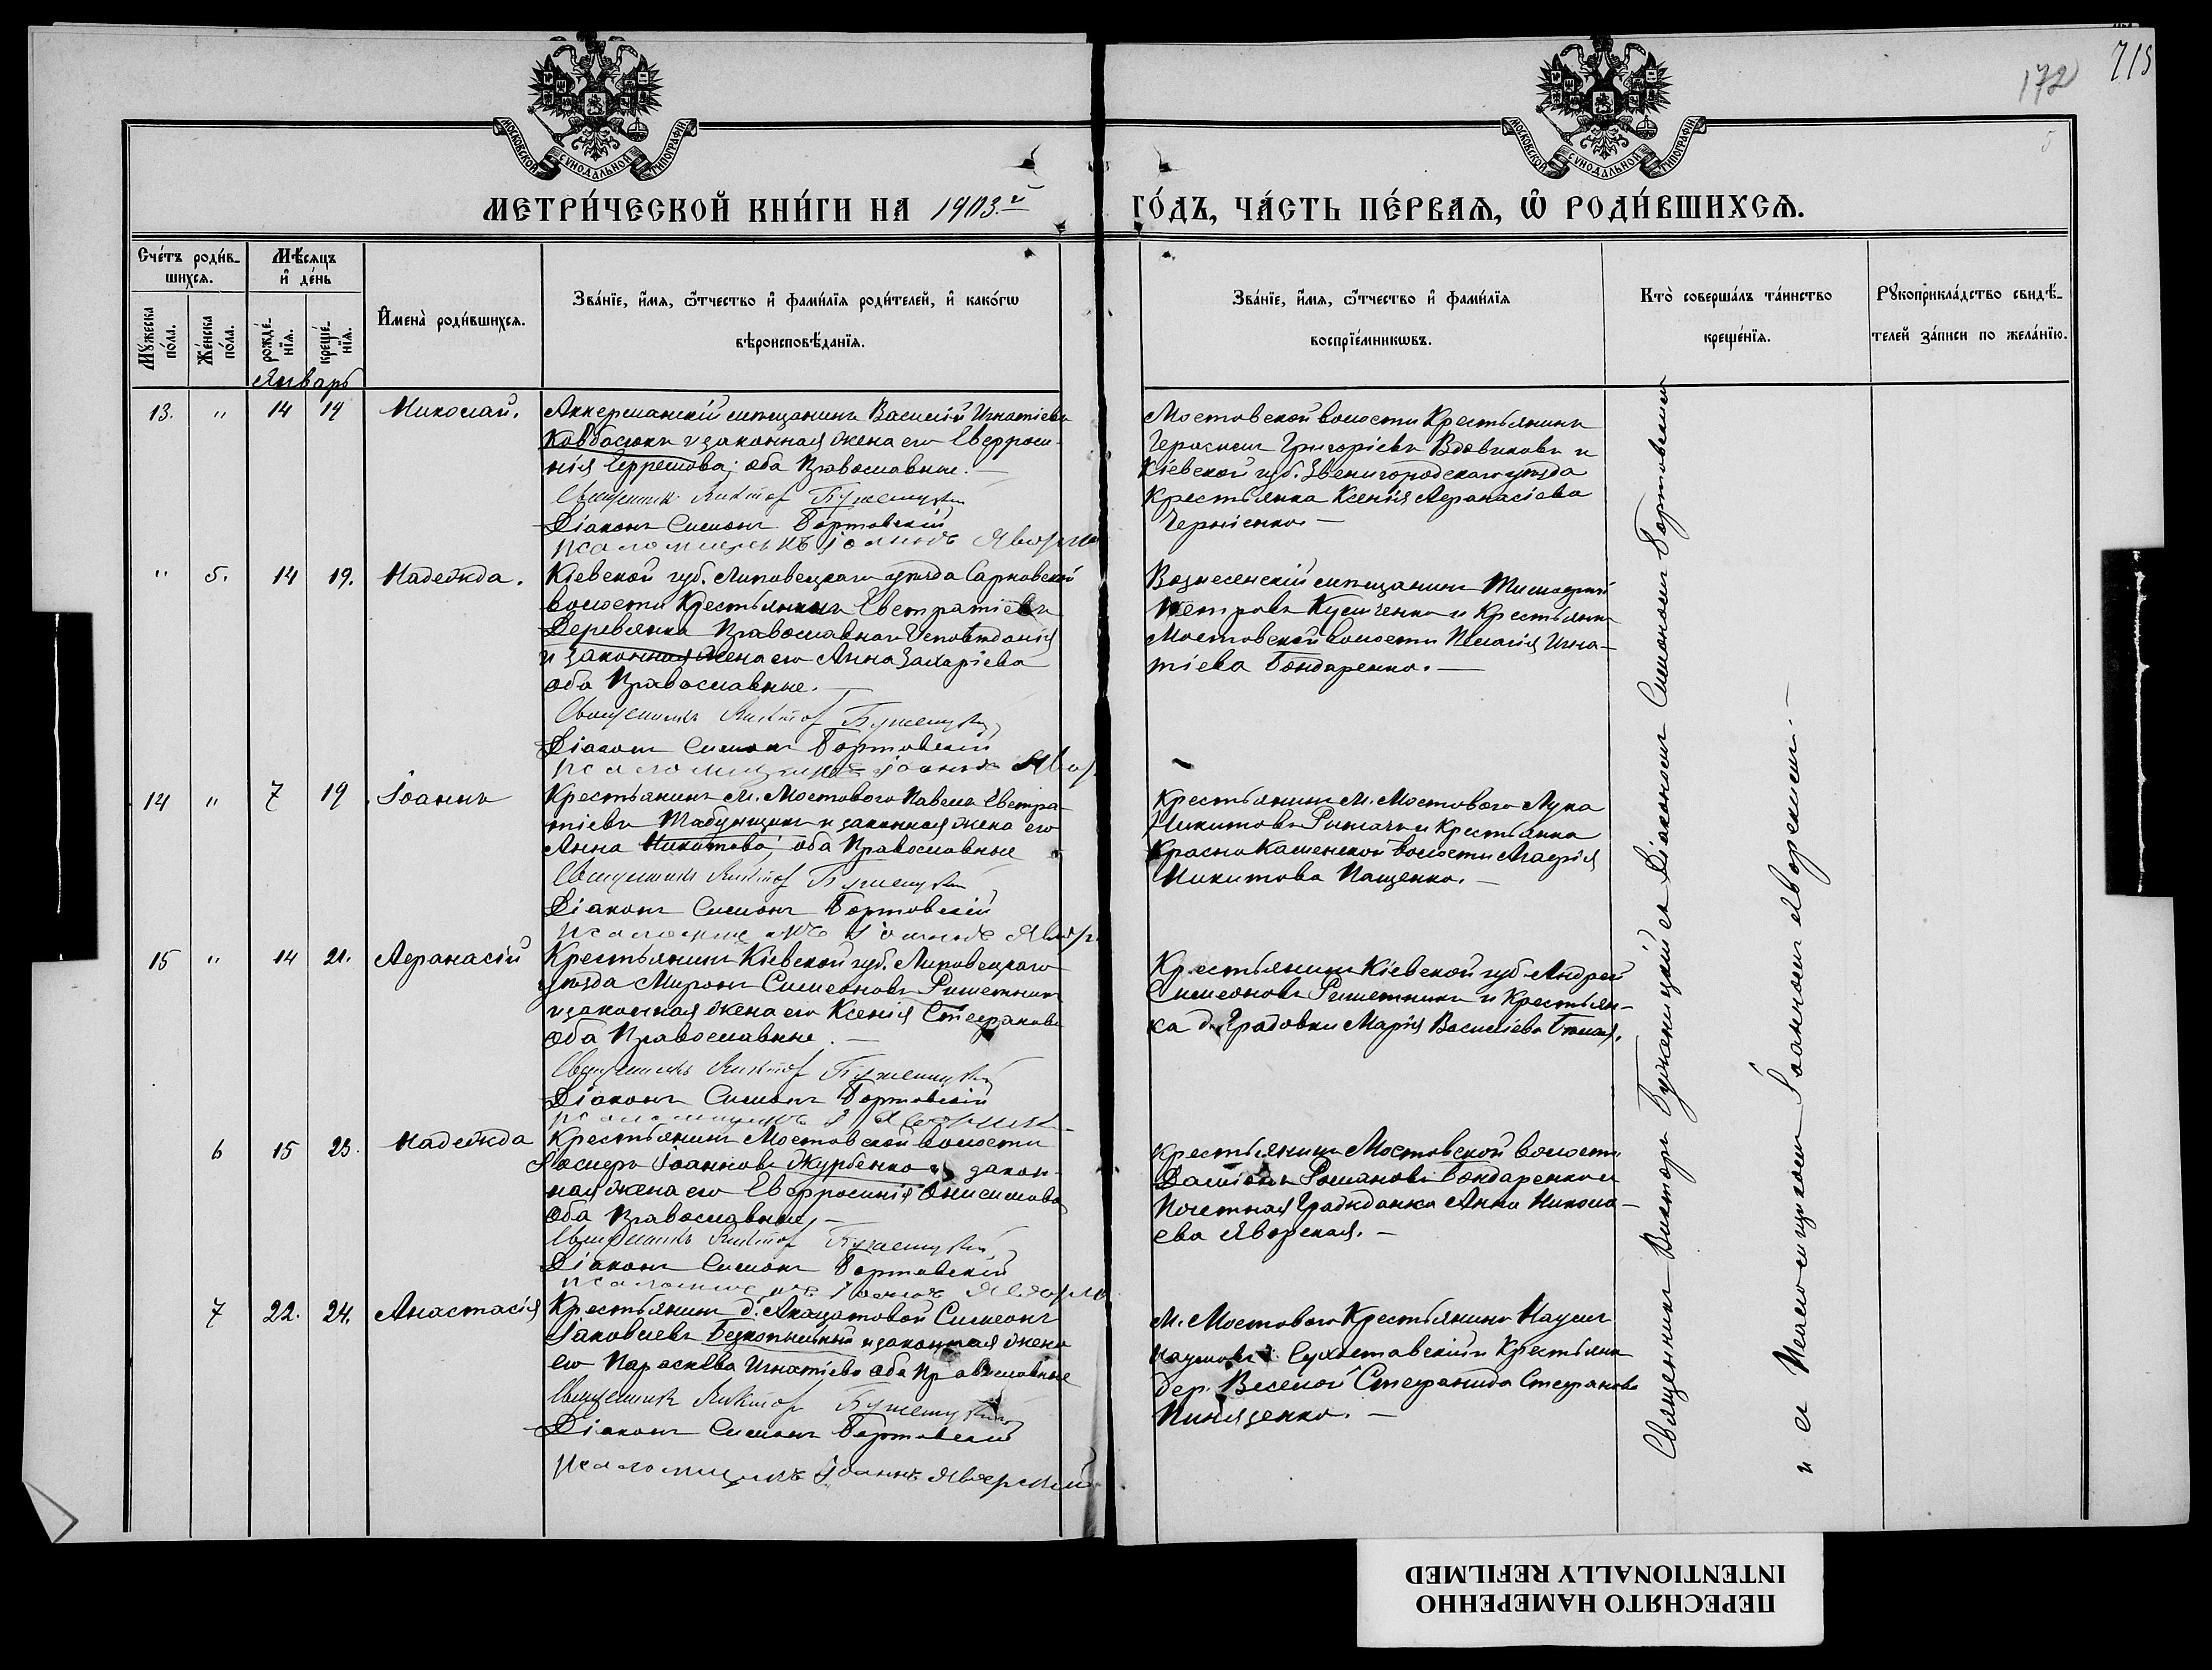 172
715
5
МОСКОВСКОЙ СѴНОДАЛЬНОЙ ТИПОГРАФІИ
МОСКОВСКОЙ СѴНОДАЛЬНОЙ ТИПОГРАФІИ
МЕТРИ́ЧЕСКОЙ КНИ́ГИ НА 1903.й
ГО́ДЪ, ЧА́СТЬ ПЕ́РВАѦ, Ѡ РОДИ́ВШИХСѦ.
Сче́тъ роди́в-
шихсѧ.
Мꙋ́жеска
по́ла.
Же́нска
по́ла.
Мѣ́сѧцъ
и҆ де́нь
рожде́-
нїѧ.
креще́-
нїѧ.
И҆мена̀ роди́вшихсѧ.
Зва́нїе, и҆́мѧ, ѻ҆́тчество и҆ фами́лїѧ роди́телей, и҆ како́гѡ
вѣроисповѣ́данїѧ.
Зва́нїе, и҆́мѧ, ѻ҆́тчество и҆ фами́лїѧ
воспрїе́мникѡвъ.
Кто̀ соверша́лъ та́инство
креще́нїѧ.
Рꙋкоприкла́дство свидѣ́-
телей за́писи по жела́нїю.
Январь
13.
"
14
19
Николай.
Аккерманскій мѣщанинъ Василій Игнатіевъ
Ковбасюкъ и законная жена его Евфроси-
нія Ефремова; оба Православные. —
Священник Виктор Бужницкій
Діаконъ Симонъ Бортовскій
псаломщикъ Іоаннъ Яворск
Мостовской волости Крестьянинъ
Герасимъ Григоріевъ Вдовиковъ и
Кіевской губ. Звенигородскаго уѣзда
Крестьянка Ксенія Афанасіева
Черніенко. —
"
5.
14
19.
Надежда.
Кіевской губ. Липовецкаго уѣзда
волости Крестьянинъ Евстратіевъ
Деревянко Православнаго Исповѣданія
и законная жена его Анна Захаріева
оба Православные. —
Священникъ Виктор Бужницкій
Діаконъ Симонъ Бортовскій
псаломщикъ Іоаннъ Явор
Вознесенскій мѣщанинъ Тимофей
Петровъ и Крестьянка
Мостовской волости Пелагія Игна-
тіева Бондаренко. —
14
"
7
19
Іоаннъ
Крестьянинъ м. Мостового Павелъ Евстра-
тіевъ Табунщикъ и законная жена его
Анна Никитова; оба Православные
Священник Виктор Бужницкій
Діаконъ Симонъ Бортовскій
псаломщикъ Іоаннъ Явор
Крестьянинъ м. Мостового Лука
Никитовъ и Крестьянка
Краснокаменской волости Агафія
Никитова Пащенко. —
15
"
14
21.
Афанасій
Крестьянинъ Кіевской губ. Липовецкаго
уѣзда Миронъ Симеоновъ Ришетникъ
и законная жена его Ксенія Стефанова
оба Православные. —
Священникъ Виктор Бужницкій
Діаконъ Симонъ Бортовскій
псаломщикъ І Яворск
Крестьянинъ Кіевской губ. Андрей
Симеоновъ Ришетникъ и Крестьян-
ка д. Градовки Марія Василіева
6
15
23.
Надежда
Крестьянинъ Мостовской волости
Іосифъ Іоанновъ Журбенко и закон-
ная жена его Евфросинія Онисимова
оба Православные, —
Священникъ Виктор Бужницкій
Діаконъ Симонъ Бортовскій
псаломщикъ Іоаннъ Яворск
Крестьянинъ Мостовской волости
Романовъ Бондаренко и
Почетная Гражданка Анна Никола-
ева Яворская. —
7
22.
24.
Анастасія
Крестьянинъ д. Акацатовой Симеонъ
Іаковлевъ и законная жена
его Параскева Игнатіева оба Православные
Священникъ Виктор Бужницкій
Діаконъ Симонъ Бортовскій
псаломщикъ Іоаннъ Яворскій
м. Мостового Крестьянинъ Наумъ
Наумовъ и Крестьянк
дер. Веселой Стефанида Стефанова
Священникъ Викторъ Бужницкій съ Діакономъ Симономъ Бортовскимъ
и съ Псаломщикомъ Іоанномъ Яворскимъ. —
ПЕРЕСНЯТО НАМЕРЕННО
INTENTIONALLY REFILMED